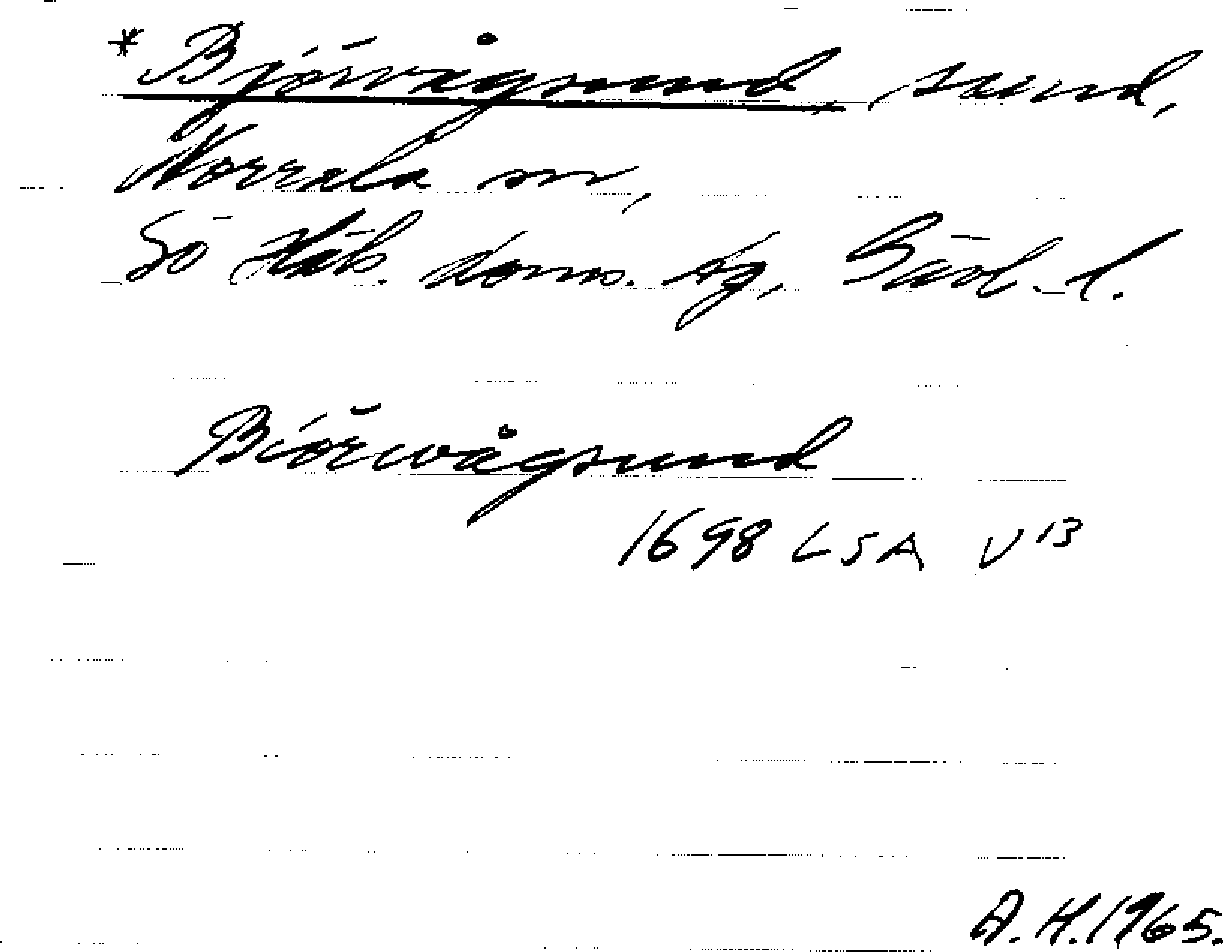 * Björvågsund, sund,
Norrala sn,
Sö Häls. doms. tg, Gävl. l.
Biörwågsund
1698 LSA V 13
A.H. 1965.